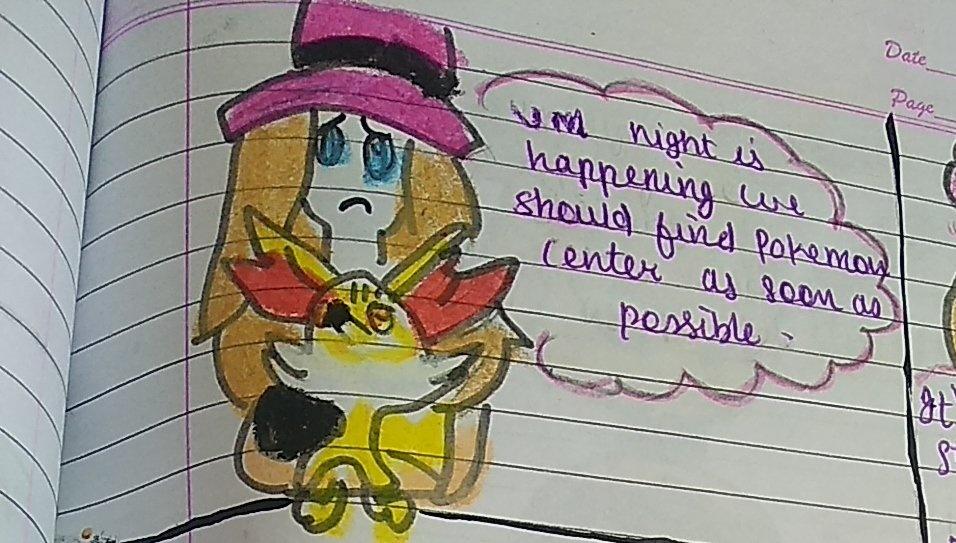 Date
Page
night is
happening we
should find Pokemon
Center as soon as
possible.